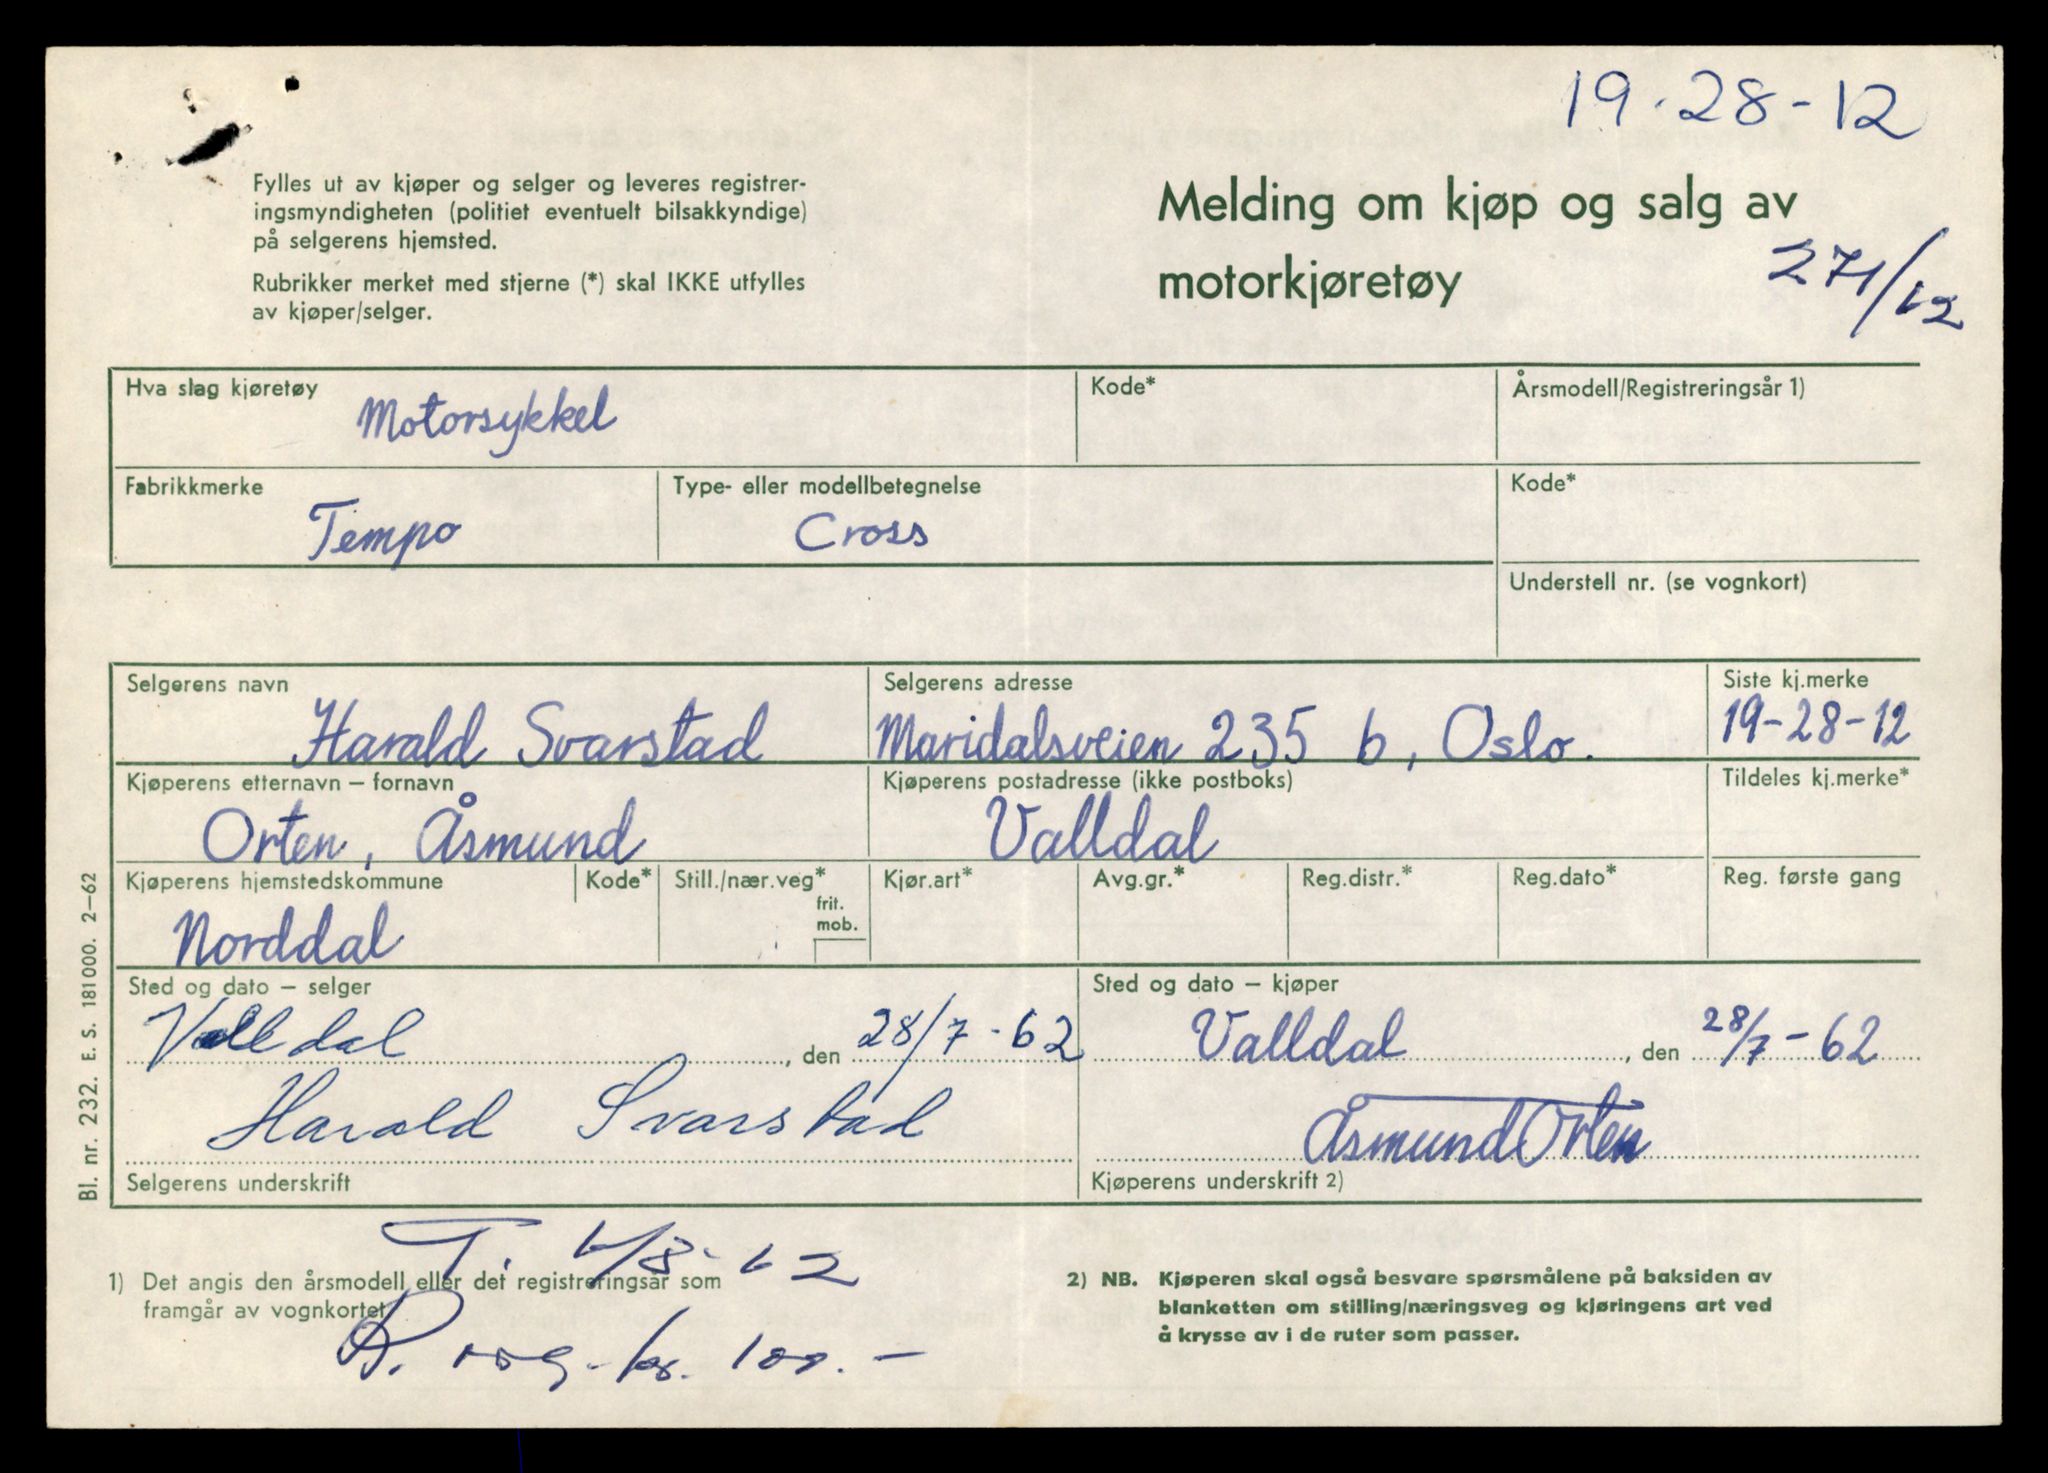 19-28-12
Fylles ut av kjøper og selger og leveres registrer-
ingsmyndigheten (politiet eventuelt bilsakkyndige)
på selgerens hjemsted.
Rubrikker merket med stjerne (*) skal IKKE utfylles
av kjøper/selger.
Melding om kjøp og salg av
motorkjøretøy
271/62
Hva slag kjøretøy
Motorsykkel
Kode*
Årsmodell/Registreringsår 1)
Fabrikkmerke
Tempo
Type- eller modellbetegnelse
Cross
Kode*
Understell nr. (se vognkort)
Selgerens navn
Harald Svarstad
Selgerens adresse
Maridalsveien 235 b, Oslo.
Siste kj.merke
19-28-12
Kjøperens etternavn – fornavn
Orten, Åsmund
Kjøperens postadresse (ikke postboks)
Valldal
Tildeles kj.merke*
Kjøperens hjemstedskommune
Norddal
Kode*
Still./nær.veg*
frit.
mob.
Kjør.art*
Avg.gr.*
Reg.distr.*
Reg.dato*
Reg. første gang
Sted og dato – selger
Valldal, den 28/7-62
Harald Svarstad
Selgerens underskrift
Sted og dato – kjøper
Valldal, den 28/7-62
Åsmund Orten
Kjøperens underskrift 2)
Bl. nr. 232. E. S. 181000. 2–62
T. 6/8-62
1) Det angis den årsmodell eller det registreringsår som
framgår av vognkortet
kr. 100.-
2) NB. Kjøperen skal også besvare spørsmålene på baksiden av
blanketten om stilling/næringsveg og kjøringens art ved
å krysse av i de ruter som passer.